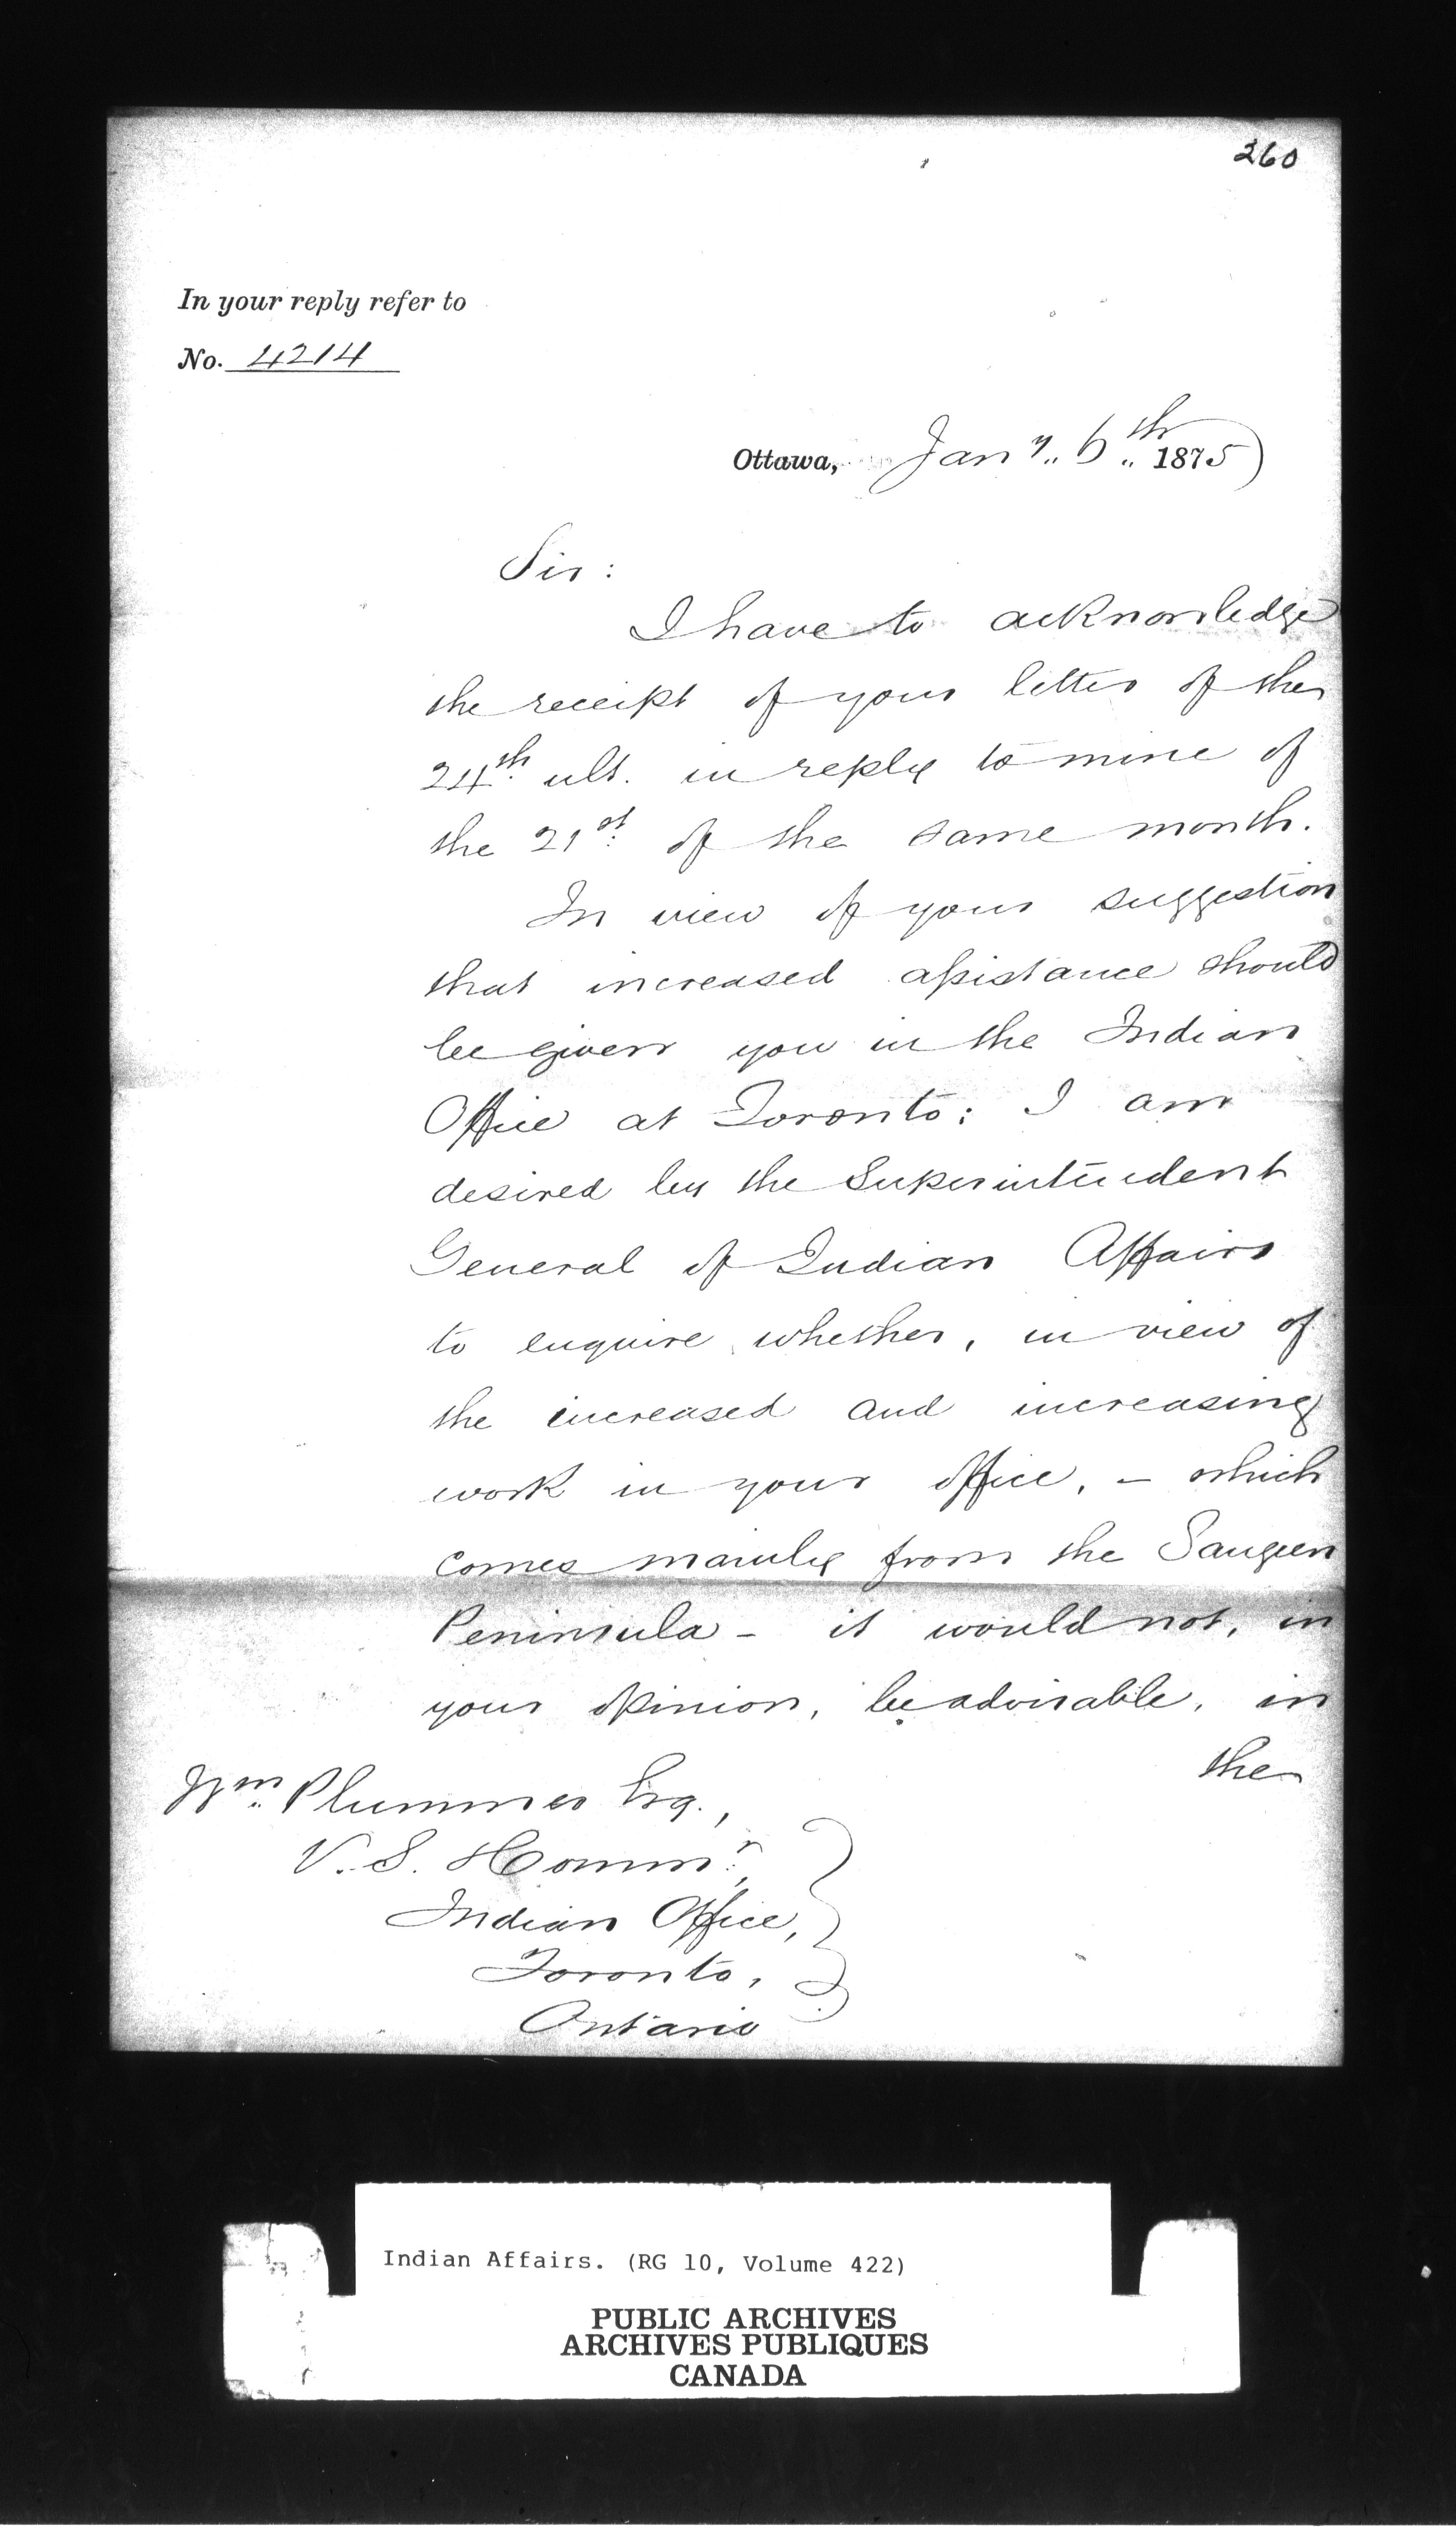 260
In your reply refer to
No. 4214
Ottawa, Jany. 6th 1875
Sir:
I have to acknowledge
the receipt of your letter of the
24th ult. in reply to mine of
the 21st of the same month.
In view of your suggestion
that increased assistance should
be given you in the Indian
Office at Toronto; I am
desired by the Superintendent
General of Indian Affairs
to enquire whether, in view of
the increased and increasing
work in your office, - which
comes mainly from the Saugeen
Peninsula - it would not, in
your opinion, be advisable, in
the
Wm. Plummer Esq.,
V. S. Commr.,
Indian Office,
Toronto,
Ontario
Indian Affairs. (RG 10, Volume 422)
PUBLIC ARCHIVES
ARCHIVES PUBLIQUES
CANADA